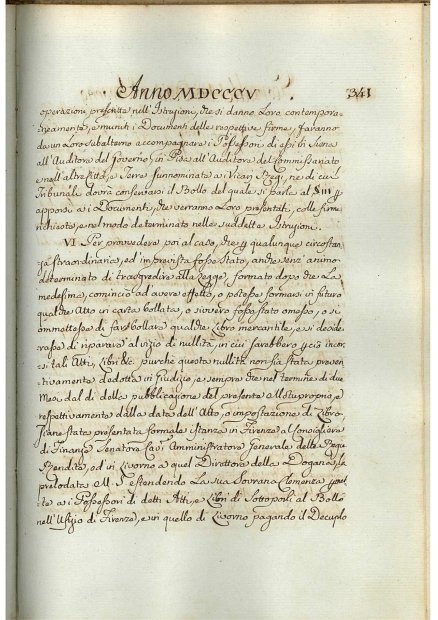 Anno MDCCCV 341
operazioni prescritte nell'Istruzioni, che si danno Loro contempora-
neamente, e muniti i Documenti delle respettive firme, faranno
da un Loro subalterno accompagnare i Possessori di essi in Siena
all'Auditore del Governo, in Pisa all'Auditore del Commissariato
e nell'altre Città, e Terre sunnominate a Vicarj Regj, ne di cui
Tribunali dovrà conservarsi il Bollo del quale si parla al § III
apporsi a i Documenti, che verranno Loro presentati, colle firme
richieste, e nel modo determinato nelle suddette Istruzioni.
VI. Per provvedere poi al caso, che qualunque circostan-
za straordinaria, ed imprevista fosse stato, anche senz'animo
determinato di trasgredire alla Legge, formato dopo che La
medesima, cominciò ad avere effetto, o potesse formarsi in futuro
qualche Atto in carta bollata, o sivvero fosse stato omesso, o si
ommettesse di far bollare qualche Libro mercantile, e si deside-
rasse di riparare al vizio di nullità, in cui sarebbero ciò incor-
si tali Atti, Libri &c. purchè questa nullità non sia stata preven-
tivamente dedotta in Giudizio, e sempre che nel termine di due
Mesi dal dì della pubblicazione del presente a Loro proprio, e
respettivamente dalla data dell'Atto, o impostazione di Libro
siane stata presentata formale istanza in Firenze al Consigliere
di Finanze Senatore Amministratore Generale delle Regie
Rendite, ed in Livorno a quel Direttore della Dogana, la
prelodata M. S. estendendo La sua Sovrana Clemenza
te a i Possessori di detti Atti, e Libri di sottoporli al Bollo
nell'Ufizio di Firenze, e in quello di Livorno pagando il Decuplo